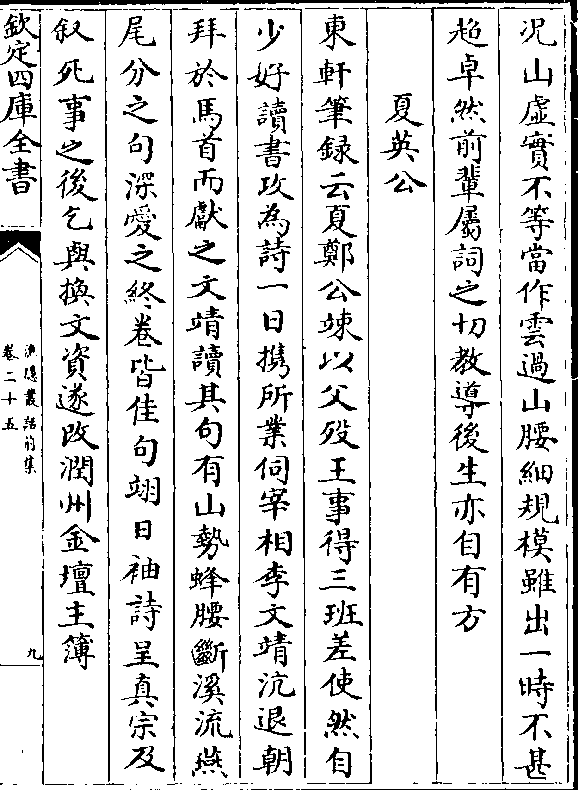 况山虛實不等當作雲過山腰細規模雖出一時不甚
超卓然前輩屬詞之切教導後生亦自有方
夏英公
東軒筆録云夏鄭公竦以父殁王事得三班差使然自
少好讀書攻為詩一日携所業伺宰相李文靖沆退朝
拜於馬首而獻之文靖讀其句有山勢蜂腰斷溪流燕
尾分之句深愛之終卷皆佳句翊日袖詩呈真宗及
叙死事之後乞與換文資遂改潤州金壇主簿
欽定四庫全書
漁隱叢話前集
卷二十五
九